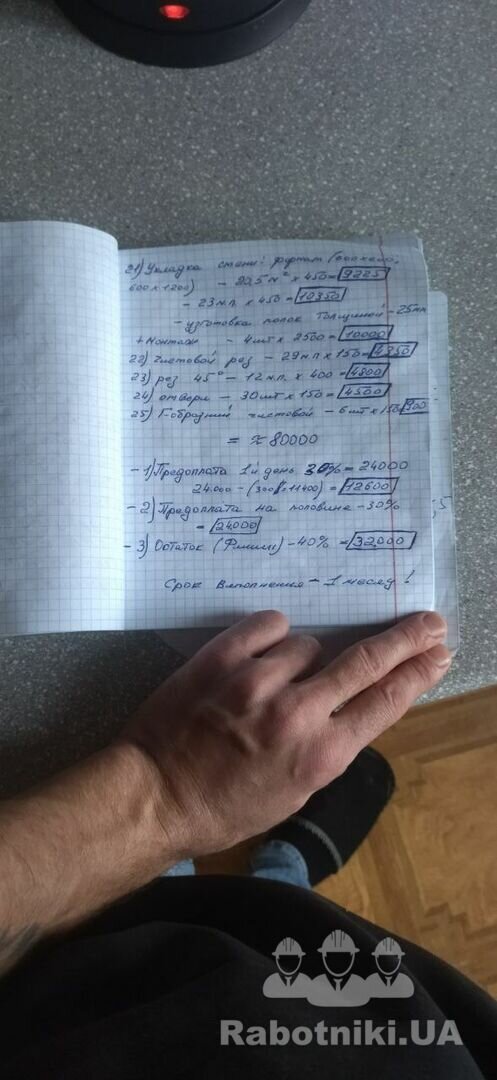 21) Укладка стены: формат (600х600,
600 х 1200) - 20,5 м² х 450 = 9225
- 23 м.п. х 450 = 10350
- узготовка полок толщиной - 25мм
+ монтаж - 4шт х 2500 = 10000
22) чистовой рез - 29 м.п х 150 = 4350
23) рез 45° - 12 м.п. х 400 = 4800
24) отверы - 30 шт х 150 = 4500
25) Г-образний чистовой - 6 шт х 150 900
= ≈ 80000
- 1) Предоплата 1й день 30% = 24000
24.000 - (300$ = 11400) = 12600
- 2) Предоплата на половине - 30%
= 24000
- 3) Остаток (Финиш) - 40% = 32000
Срок виполнения - 1 месяц!
Rabotniki.UA